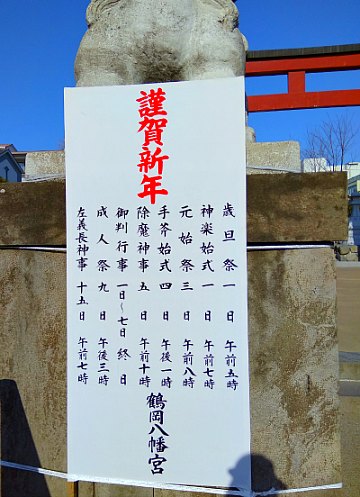 謹賀新年
歳旦祭 一日 午前五時
神楽始式 一日 午前七時
元始祭 三日 午前八時
手斧始式 四日 午後一時
除魔神事 五日 午前十時
御判行事 一日~七日 終日
成人祭 九日 午後三時
左義長神事 十五日 午前七時
鶴岡八幡宮